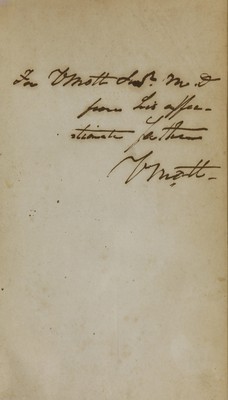 For V Mott Jun^r. M.D
from his affec-
tionate father
V Mott-